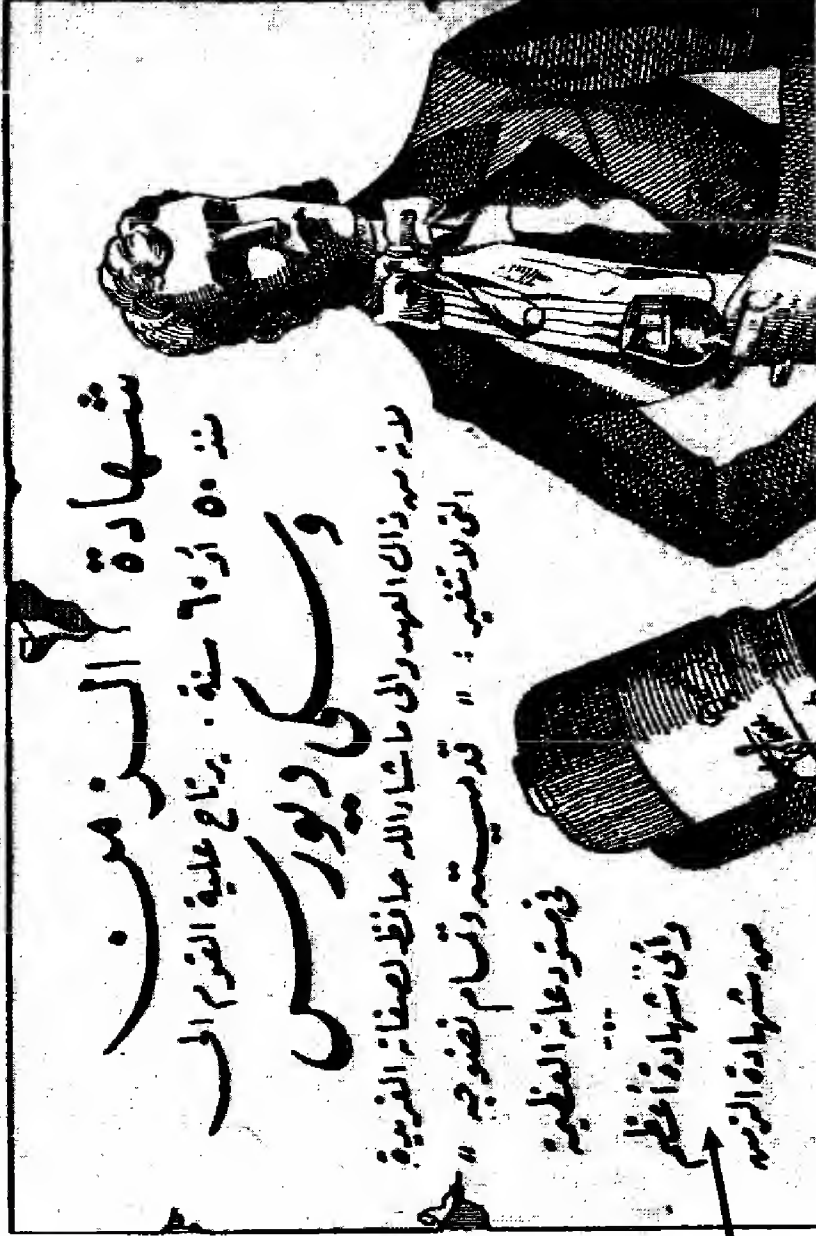 شهادة الزمن
منذ ٥٠ أو ٦٠ سنة . يرتاح علية القوم الى
وسكي ديورس
لانه من ذاك العهد والى ماشاءالله حافظ لصفاته الفريدة
التى لا تتغير : " تعسيته وتمام نضوجه "
فى مستودعاته العظيمة
وأى شهادة أعظم
من شهادة الزمن